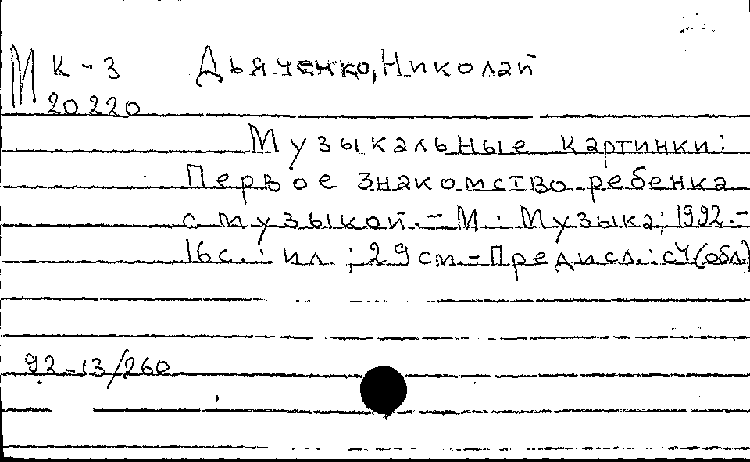 М К-3 Дьяченко, Николай
20220
Музыкальные картинки:
Первое знакомство ребенка
с музыкой. - М.: Музыка, 1992. -
16с.: ил.; 29 см. - Предисл.: с4 (обл)
92-13/260